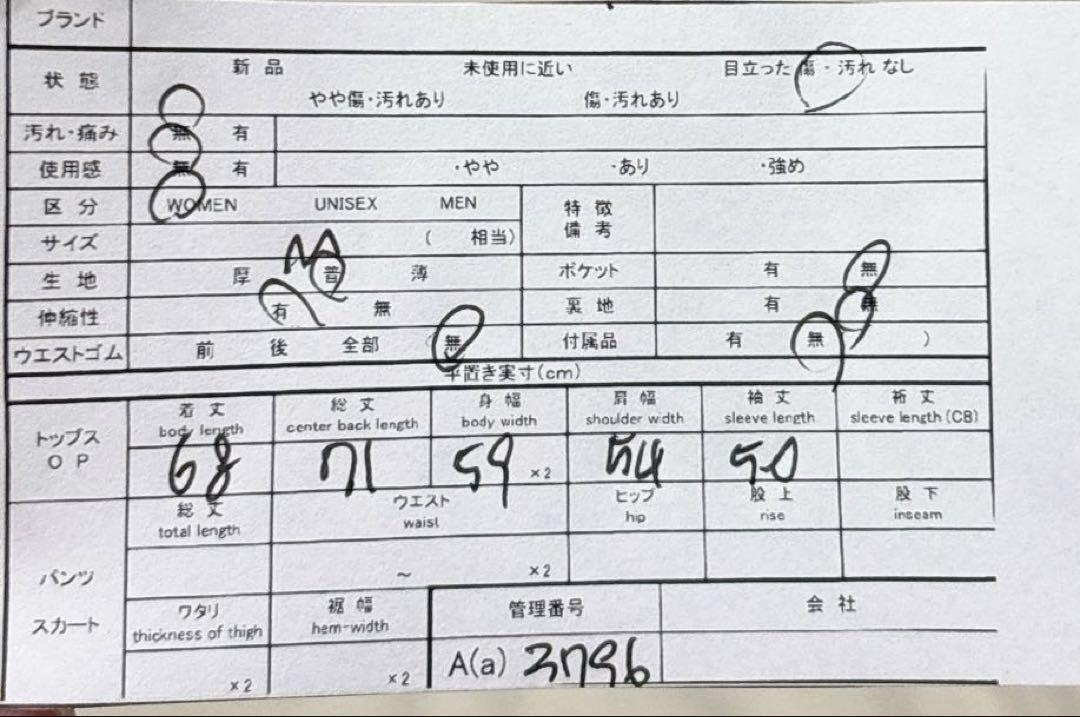 ブランド
状態 新品 未使用に近い 目立った傷・汚れなし
やや傷・汚れあり 傷・汚れあり
汚れ・痛み 無 有
使用感 無 有 ・やや ・あり ・強め
区分 WOMEN UNISEX MEN 特徴備考
サイズ M ( 相当)
生地 厚 普 薄 ポケット 有 無
伸縮性 有 無 裏地 有 無
ウエストゴム 前 後 全部 無 付属品 有 無 )
平置き実寸(cm)
トップス OP
着丈 総丈 身幅 肩幅 袖丈 裄丈
body length center back length body width shoulder width sleeve length sleeve length (CB)
68 71 59 ×2 54 50
パンツ スカート
総丈 ウエスト ヒップ 股上 股下
total length waist hip rise inseam
~ ×2
ワタリ 裾幅 管理番号 会社
thickness of thigh hem-width
×2 ×2 A(a) 3796